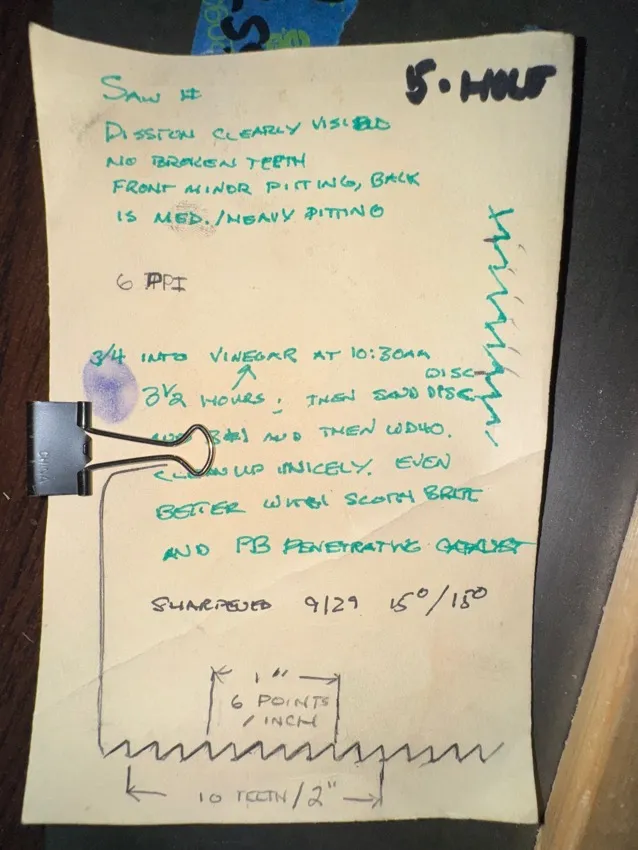 5-HOLE
SAW #
DISSTON CLEARLY VISIBLE
NO BROKEN TEETH
FRONT MINOR PITTING, BACK
IS MED./HEAVY PITTING
6 PPI
3/4 INTO VINEGAR AT 10:30AM
DISC
3 1/2 HOURS; THEN SAND DISC
AND THEN WD40.
CLEAN UP NICELY. EVEN
BETTER WITH SCOTH BRITE
AND PB PENETRATING CATALYST
SHARPENED 9/29 15°/15°
1"
6 POINTS
/INCH
10 TEETH/2"